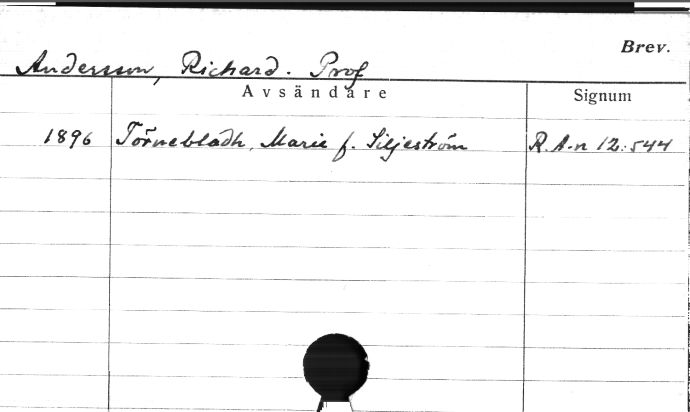 Brev.
Andersson, Richard. Prof
Avsändare Signum
1896 Törnebladh, Marie f. Siljeström R.A-n 12:544